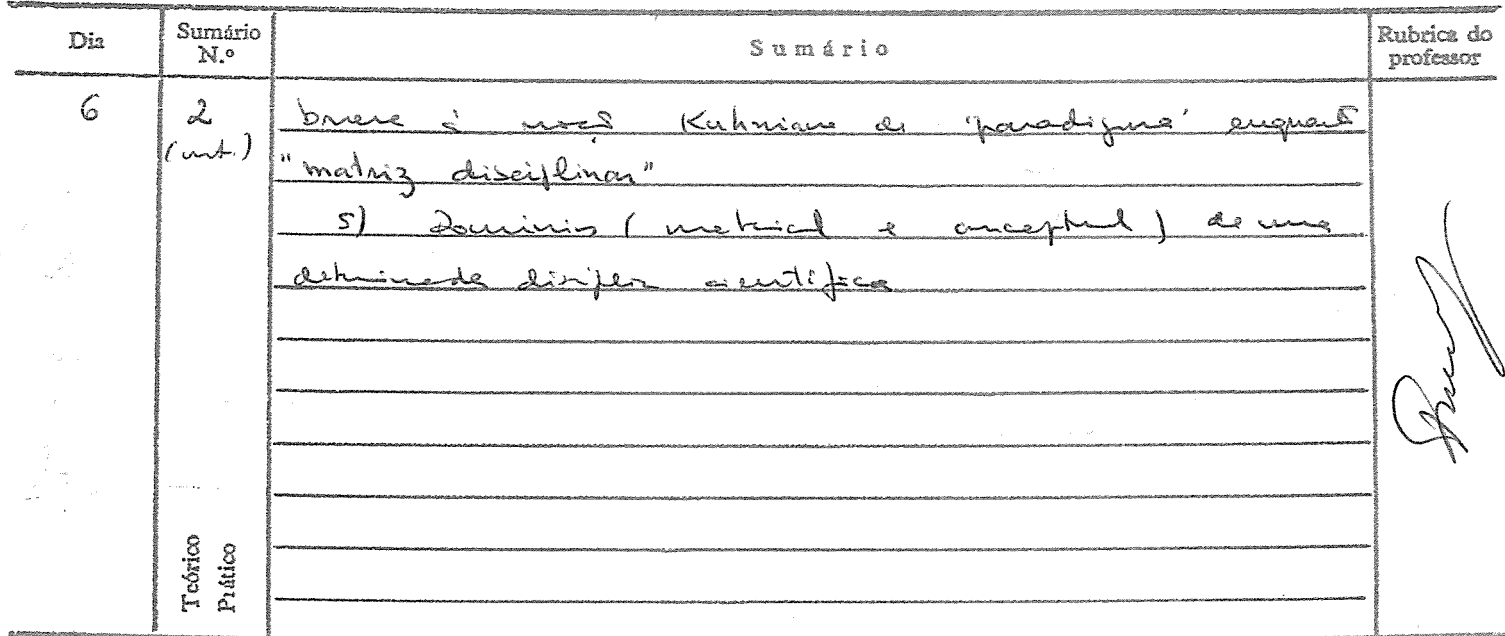 Dia
Sumário N.º
Sumário
Rubrica do professor
6
2
(cont.)
breve à noção Kuhniana de 'paradigma' enquanto
"matriz disciplinar"
5) Domínios (material e conceptual) de uma
determinada disciplina científica
Teórico
Prático